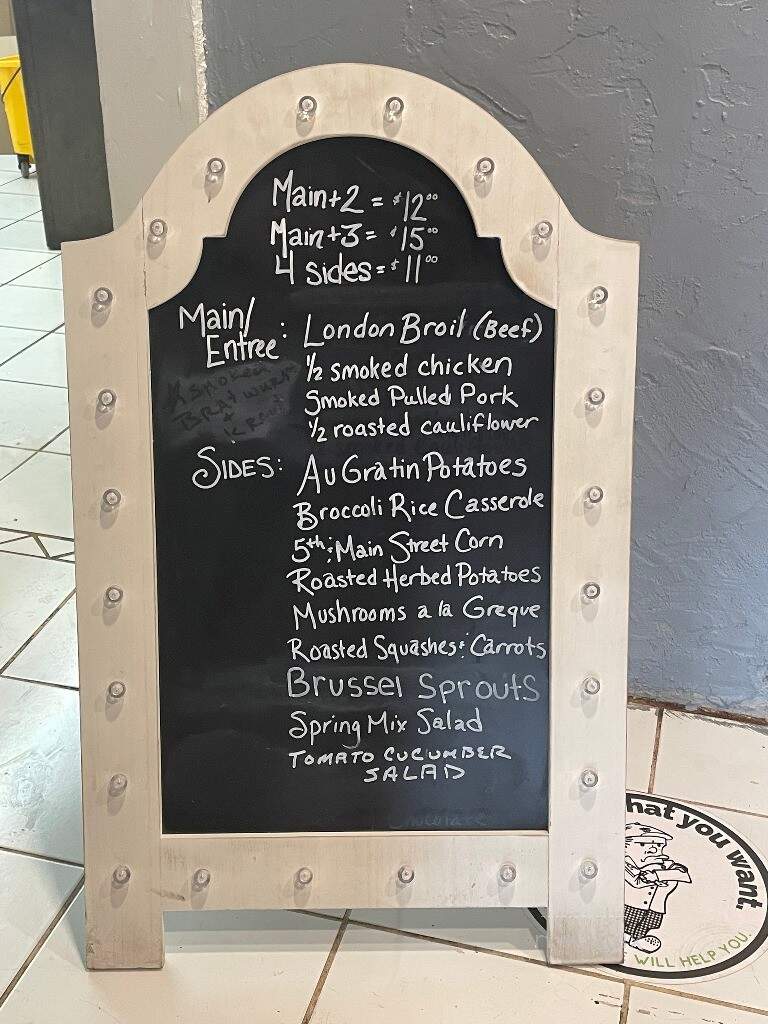 Main+2 = $12⁰⁰
Main+3 = $15⁰⁰
4 sides = $11⁰⁰
Main/
Entree : London Broil (Beef)
½ smoked chicken
Smoked Pulled Pork
½ roasted cauliflower
SIDES: Au Gratin Potatoes
Broccoli Rice Casserole
5th & Main Street Corn
Roasted Herbed Potatoes
Mushrooms a la Greque
Roasted Squashes & Carrots
Brussel Sprouts
Spring Mix Salad
TOMATO CUCUMBER
SALAD
Chocolate
hat you want,
WILL HELP YOU.